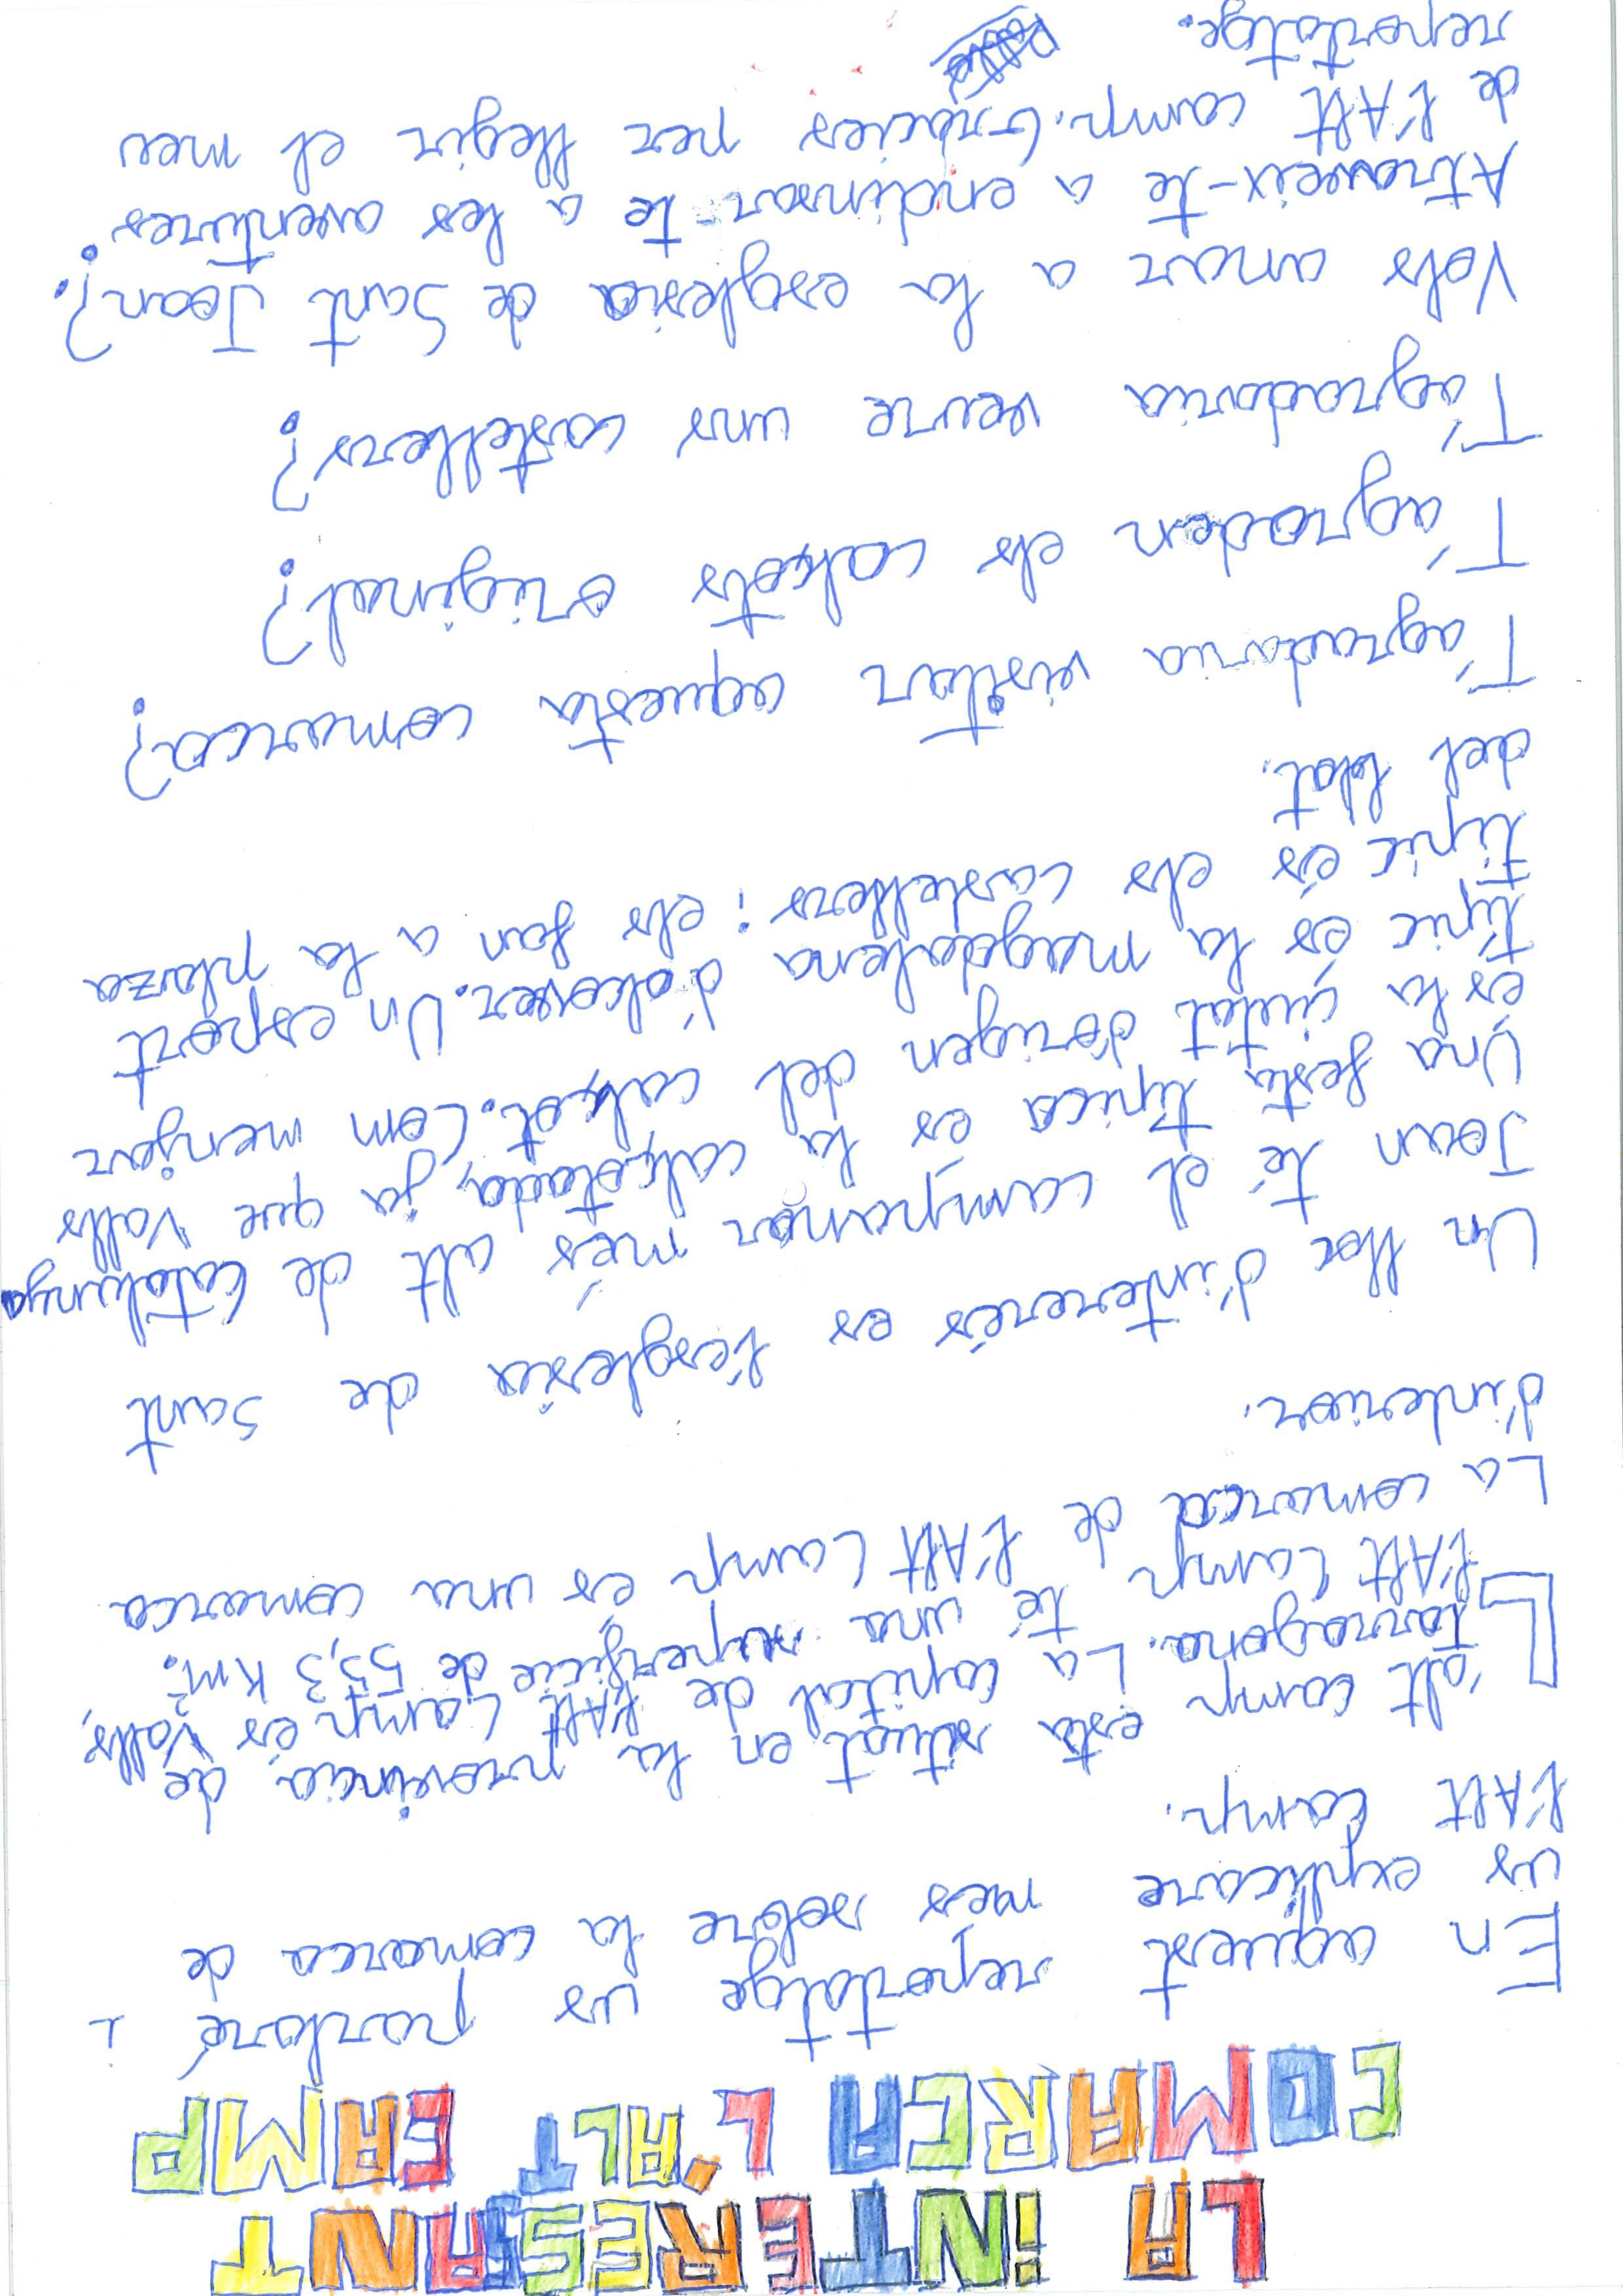 LA INTERESANT
COMARCA L'ALT CAMP
En aquest reportatge us parlaré i
us explicare mes sobre la comarca de
l'Alt Camp.
L'alt camp esta situat en la província de
tarragona. La capital de l'Alt Camp és Valls,
l'Alt Camp té una superficie de 55,3 Km².
La comarca de l'Alt Camp es una comarca
d'interior.
Un lloc d'interés es l'esglesia de Sant
Joan té el campanar més alt de Catalunya
Una festa típica es la calçotada, ja que Valls
és la çiutat d'origen del calçot. Com menjar
típic és la magdalena d'alcover. Un esport
típic és els castellers: els fan a la plaza
del blat.
T'agradaria visitar aquesta comarca?
T'agraden els calçots original?
T'agradaria veure uns castellers?
Vols anar a la esglesia de Sant Joan?
Atraveix-te a endinsar-te a les aventures
de l'Alt camp. Gràcies per llegir el meu
reportatge.